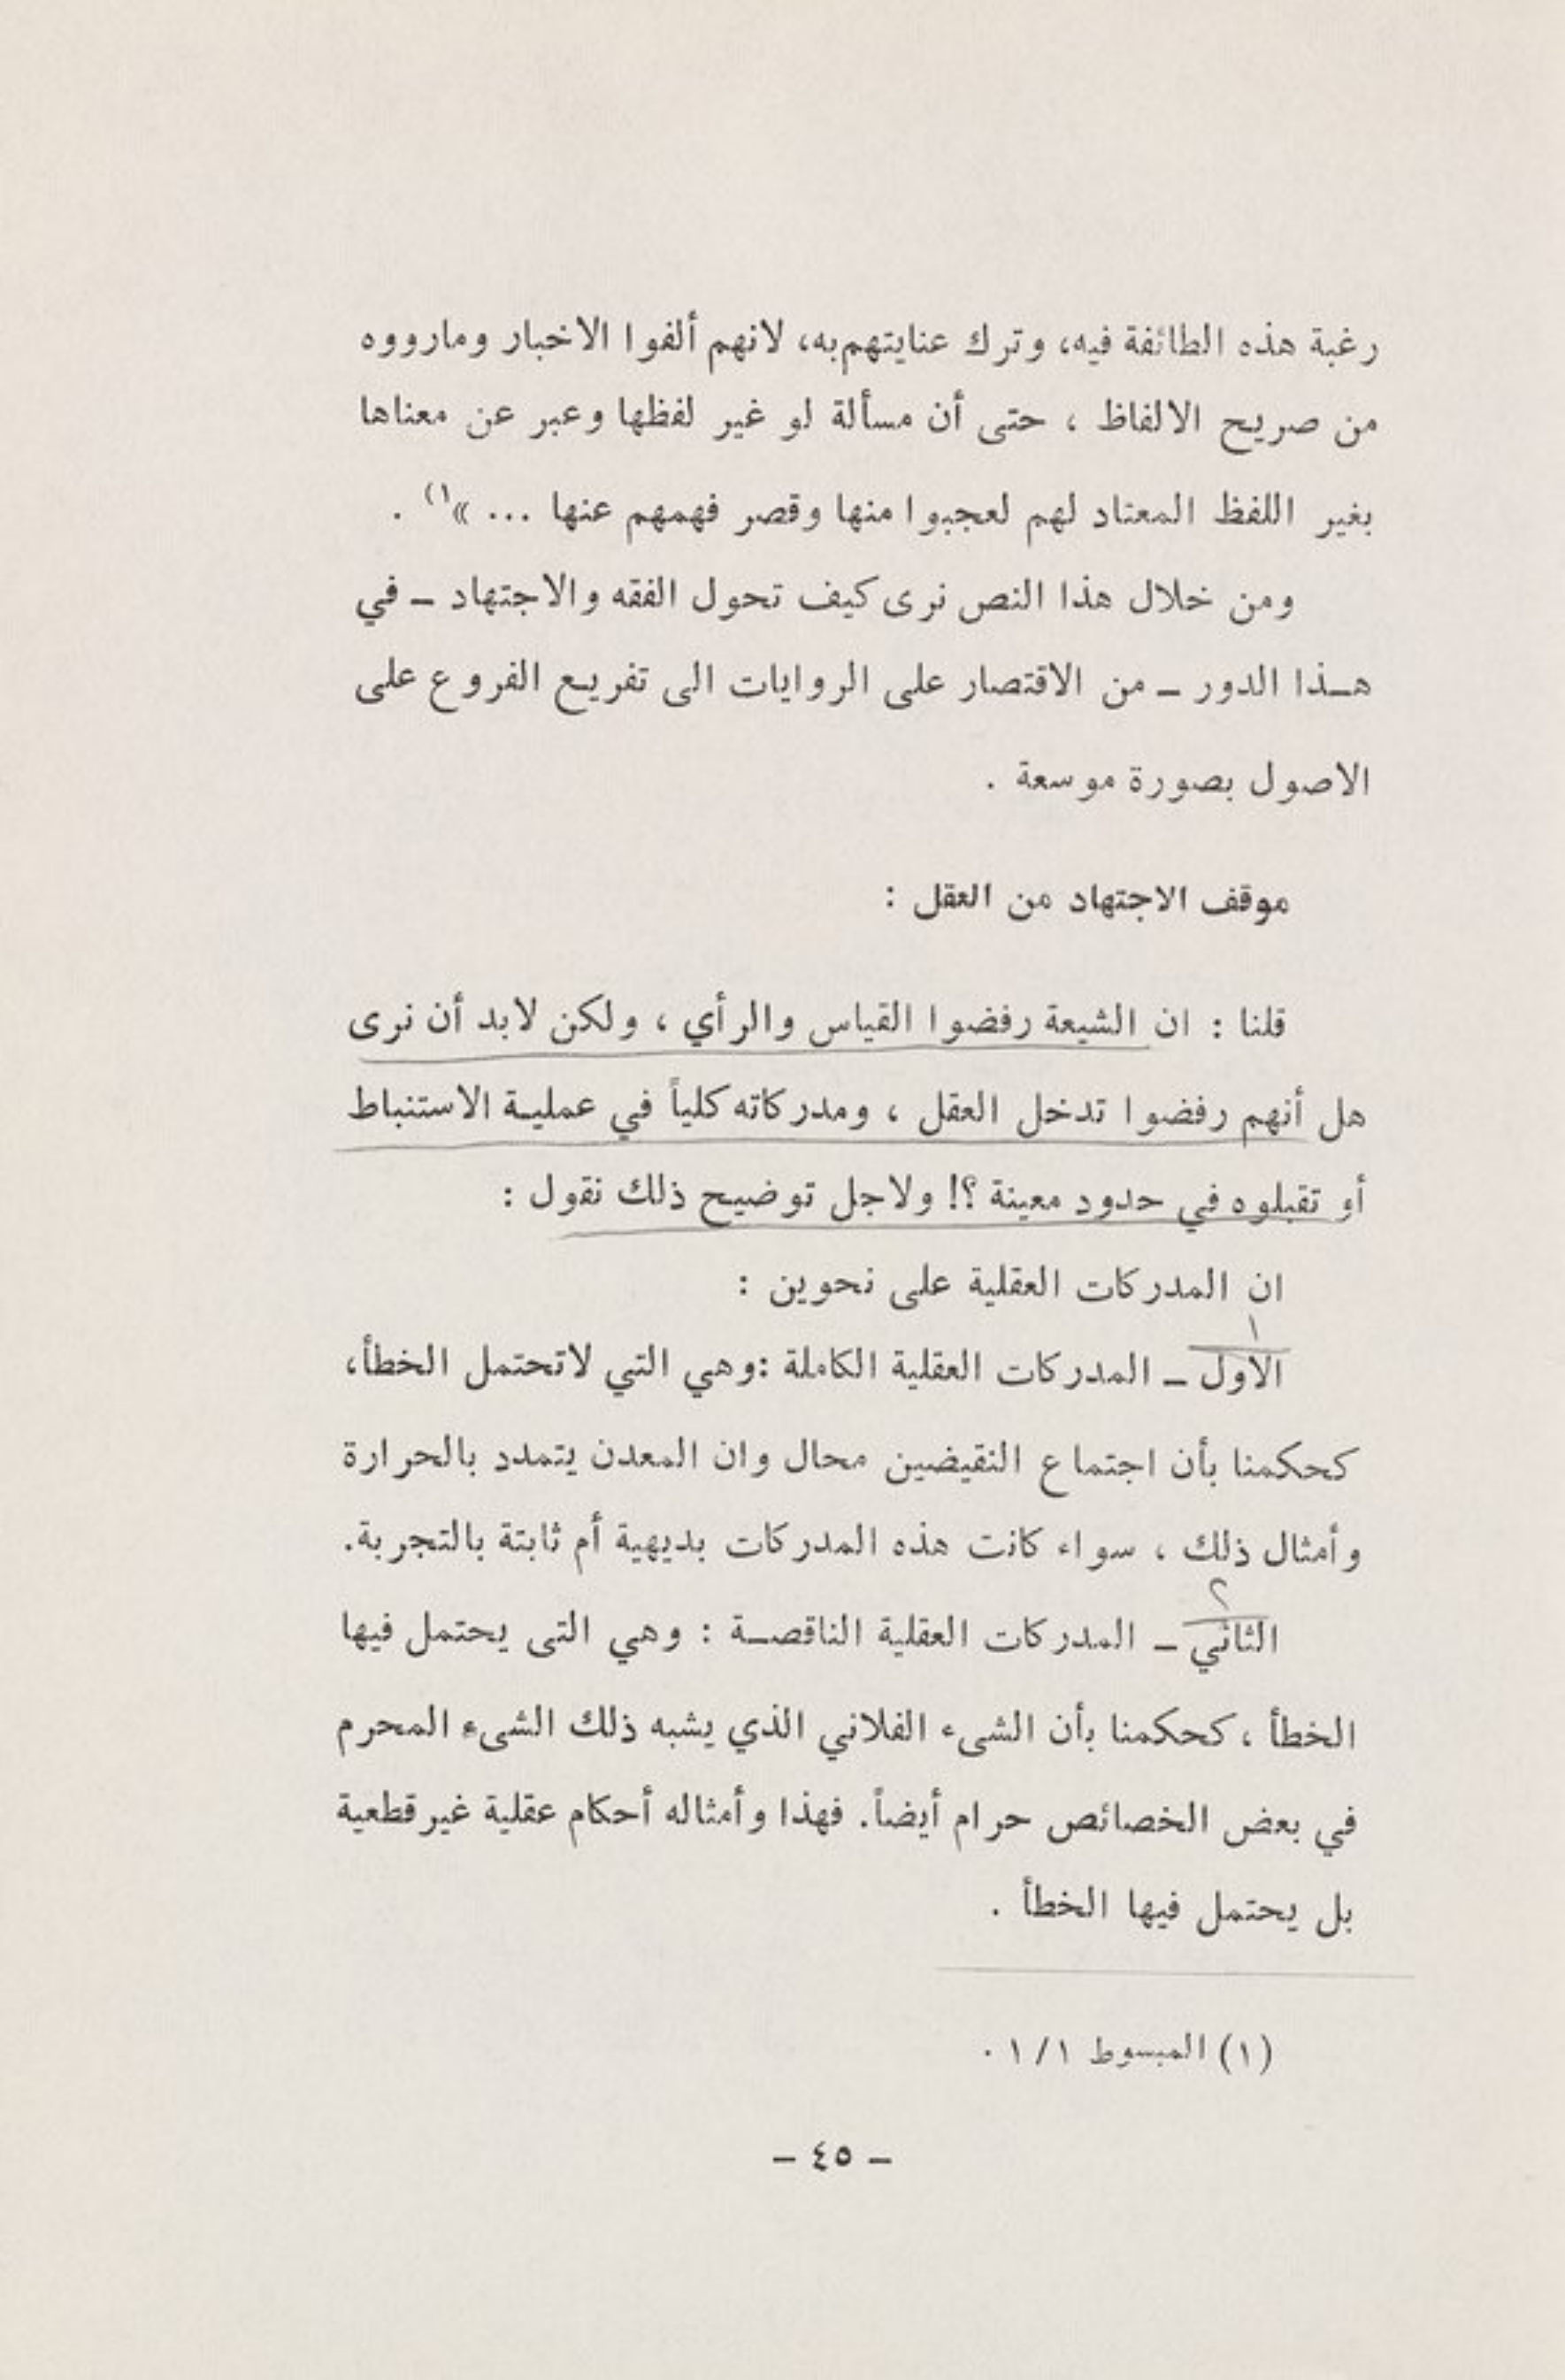 رغبة هذه الطائفة فيه، وترك عنايتهم به، لانهم ألفوا الاخبار ومارووه
من صريح الالفاظ ، حتى أن مسألة لو غير لفظها وعبر عن معناها
بغير اللفظ المعتاد لهم لعجبوا منها وقصر فهمهم عنها ... »(١) .
ومن خلال هذا النص نرى كيف تحول الفقه والاجتهاد ـ في
هـذا الدور ـ من الاقتصار على الروايات الى تفريـع الفروع على
الاصول بصورة موسعة .
موقف الاجتهاد من العقل :
قلنا : ان الشيعة رفضوا القياس والرأي ، ولكن لابد أن نرى
هل أنهم رفضوا تدخل العقل ، ومدركاته كلياً في عمليـة الاستنباط
أو تقبلوه في حدود معينة ؟! ولاجل توضيح ذلك نقول :
ان المدركات العقلية على نحوين :
١
الاول ـ المدركات العقلية الكاملة :وهي التي لاتحتمل الخطأ،
كحكمنا بأن اجتماع النقيضين محال وان المعدن يتمدد بالحرارة
وأمثال ذلك ، سواء كانت هذه المدركات بديهية أم ثابتة بالتجربة.
٢
الثاني ـ المدركات العقلية الناقصـة : وهي التى يحتمل فيها
الخطأ ، كحكمنا بأن الشىء الفلاني الذي يشبه ذلك الشىء المحرم
في بعض الخصائص حرام أيضاً. فهذا وأمثاله أحكام عقلية غير قطعية
بل يحتمل فيها الخطأ .
(١) المبسوط ١/١ .
ـ ٤٥ ـ